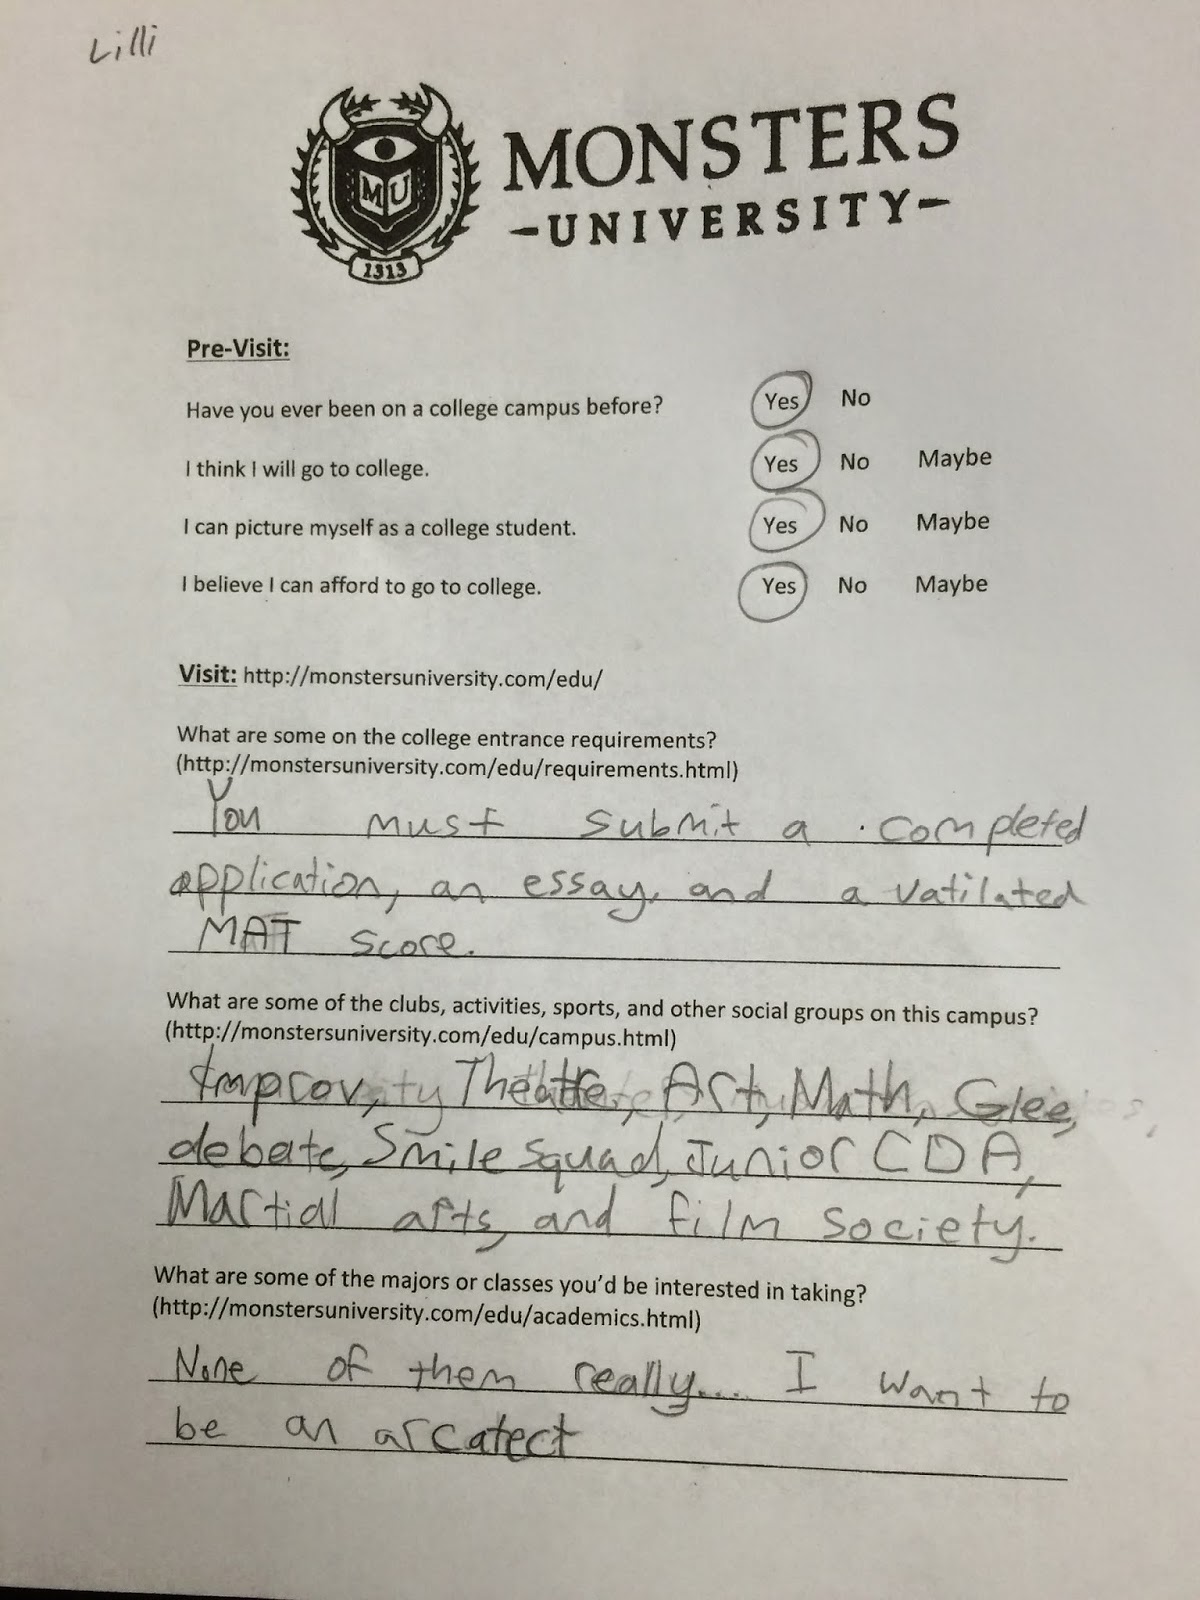 Lilli
MU
1313
MONSTERS
-UNIVERSITY-
Pre-Visit:
Have you ever been on a college campus before? Yes No
I think I will go to college. Yes No Maybe
I can picture myself as a college student. Yes No Maybe
I believe I can afford to go to college. Yes No Maybe
Visit: http://monstersuniversity.com/edu/
What are some on the college entrance requirements?
(http://monstersuniversity.com/edu/requirements.html)
You must submit a completed
application, an essay, and a vatilated
MAT score.
What are some of the clubs, activities, sports, and other social groups on this campus?
(http://monstersuniversity.com/edu/campus.html)
Improv, Theatre, Art, Math, Glee,
debate, Smile Squad, Junior CDA,
Martial arts, and film society.
What are some of the majors or classes you'd be interested in taking?
(http://monstersuniversity.com/edu/academics.html)
None of them really.... I want to
be an arcatect